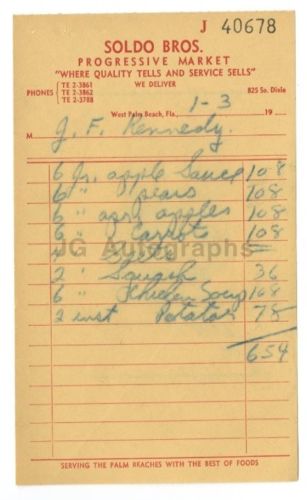 J 40678
SOLDO BROS.
PROGRESSIVE MARKET
"WHERE QUALITY TELLS AND SERVICE SELLS"
WE DELIVER
PHONES
TE 2-3861
TE 2-3862
TE 2-3788
825 So. Dixie
West Palm Beach, Fla., 1-3 19
M J. F. Kennedy.
6 Jr. apple Sauce 108
6 " pears 108
6 " apr apples 108
6 " Carrot 108
4
2 " Squash 36
6 " Chicken Soup 108
2 inst Potatoe 78
654
JG Autographs
SERVING THE PALM BEACHES WITH THE BEST OF FOODS